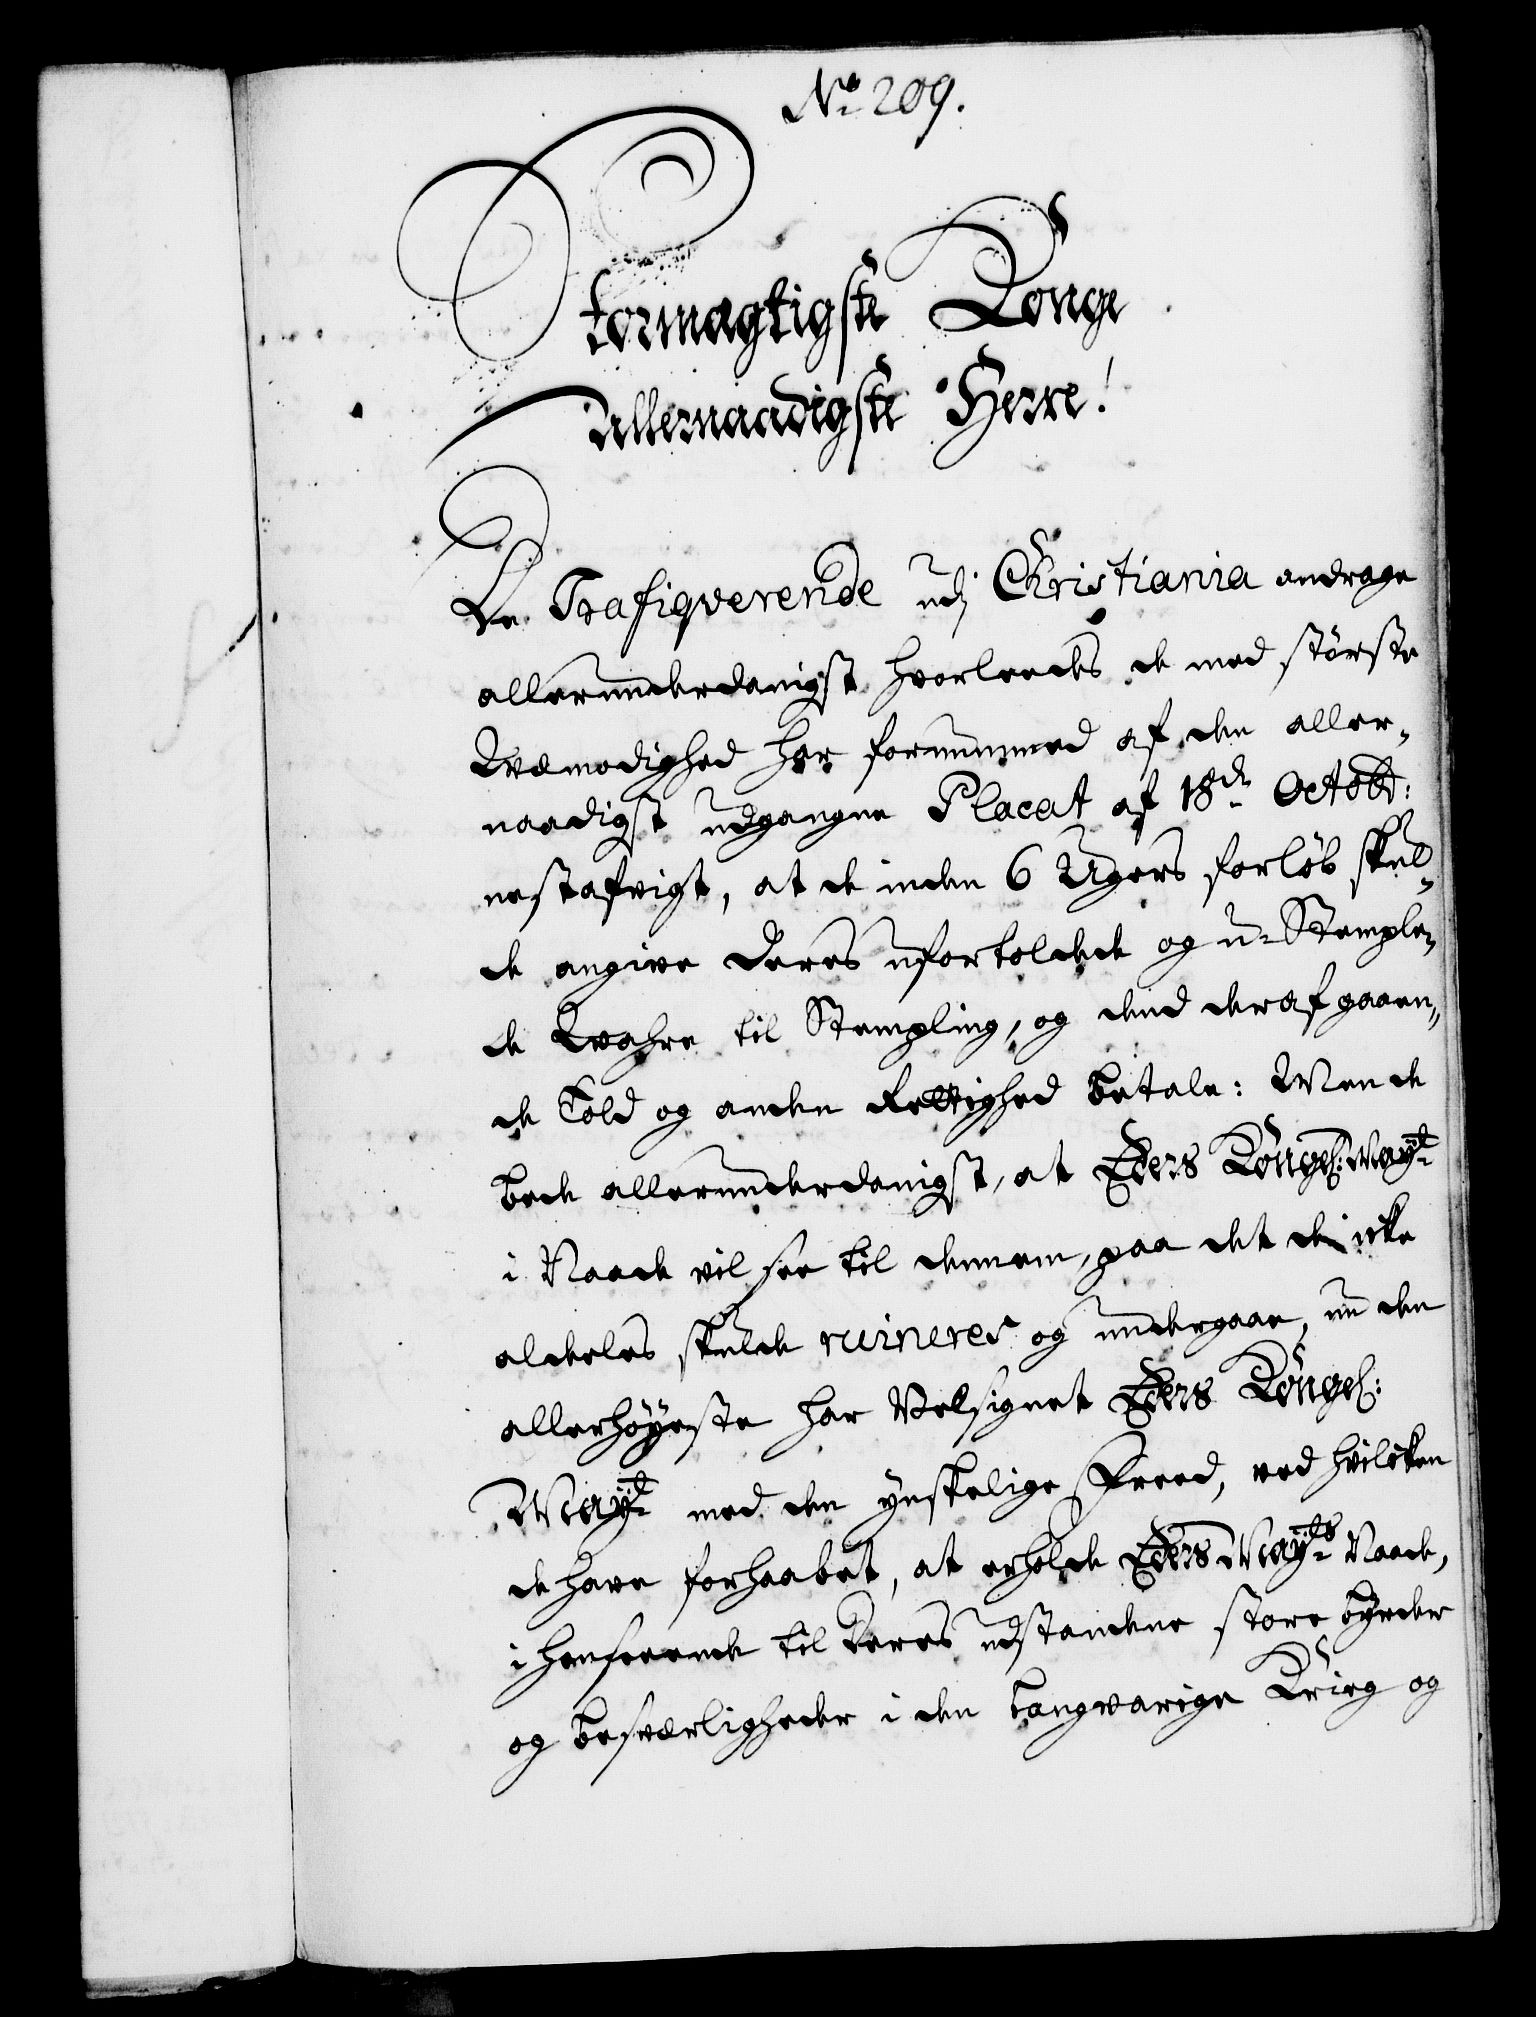 No 209.
Stormægtigste Konge
Allernaadigste Herre!
De Trafiqverende udj Christiania andrage
allerunderdanigst hvorleedes de med største
Veemodighed har fornummed af den aller-
naadigst udgangne Placat af 18de Octobr:
nestafvigt, at de inden 6 Ugers forløb skul-
de angive deres ufortoldede og u-Stemple-
de Wahre til Stempling, og dend deraf gaaen-
de Told og anden Rettighed betale: Men de
bede allerunderdanigst, at Eders Kongel: Mayt
i Naade vil see til dennem, paa det de icke
aldeles skulde ruineres og undergaae, nu den
allerhøyeste har Velsignet Eders Kongel:
Mayt med den ynskelige Freed, ved hvilcken
de have forhaabet, at erholde Eders Mayts Naade,
i henseende til deres udstandene store byrder
og besværligheder i den langvarige Krieg og